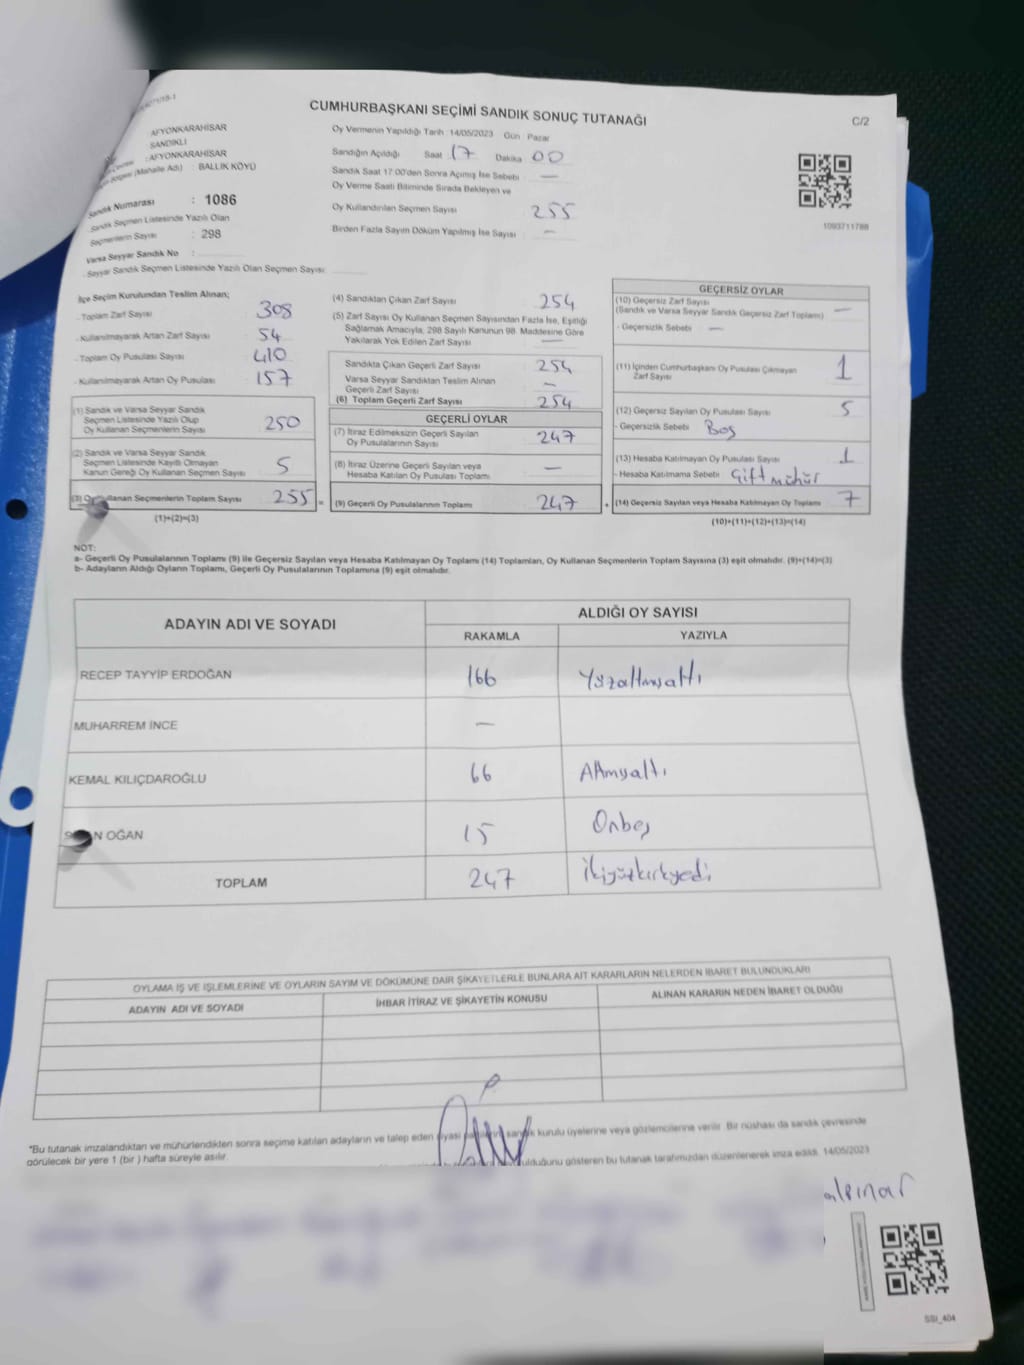 CUMHURBAŞKANI SEÇİMİ SANDIK SONUÇ TUTANAĞI
C/2
: AFYONKARAHİSAR
SANDIKLI
: AFYONKARAHİSAR
(Mahalle Adı) : BALLIK KÖYÜ
Sandık Numarası : 1086
Sandık Seçmen Listesinde Yazılı Olan
Seçmenlerin Sayısı : 298
Varsa Seyyar Sandık No :
- Seyyar Sandık Seçmen Listesinde Yazılı Olan Seçmen Sayısı:
Oy Vermenin Yapıldığı Tarih : 14/05/2023 Gün : Pazar
Sandığın Açıldığı Saat 17 Dakika 00
Sandık Saat 17:00'den Sonra Açımış İse Sebebi : —
Oy Verme Saati Bitiminde Sırada Bekleyen ve
Oy Kullandırılan Seçmen Sayısı 255
Birden Fazla Sayım Döküm Yapılmış İse Sayısı : —
1093711788
İlçe Seçim Kurulundan Teslim Alınan;
- Toplam Zarf Sayısı 308
- Kullanılmayarak Artan Zarf Sayısı 54
- Toplam Oy Pusulası Sayısı 410
- Kullanılmayarak Artan Oy Pusulası 157
(1) Sandık ve Varsa Seyyar Sandık
Seçmen Listesinde Yazılı Olup
Oy Kullanan Seçmenlerin Sayısı 250
(2) Sandık ve Varsa Seyyar Sandık
Seçmen Listesinde Kayıtlı Olmayan
Kanun Gereği Oy Kullanan Seçmen Sayısı 5
(3) Oy Kullanan Seçmenlerin Toplam Sayısı 255 =
(1)+(2)=(3)
(4) Sandıktan Çıkan Zarf Sayısı 254
(5) Zarf Sayısı Oy Kullanan Seçmen Sayısından Fazla İse, Eşitliği
Sağlamak Amacıyla, 298 Sayılı Kanunun 98. Maddesine Göre
Yakılarak Yok Edilen Zarf Sayısı —
Sandıkta Çıkan Geçerli Zarf Sayısı 254
Varsa Seyyar Sandıktan Teslim Alınan
Geçerli Zarf Sayısı —
(6) Toplam Geçerli Zarf Sayısı 254
GEÇERLİ OYLAR
(7) İtiraz Edilmeksizin Geçerli Sayılan
Oy Pusulalarının Sayısı 247
(8) İtiraz Üzerine Geçerli Sayılan veya
Hesaba Katılan Oy Pusulası Toplamı —
(9) Geçerli Oy Pusulalarının Toplamı 247 +
GEÇERSİZ OYLAR
(10) Geçersiz Zarf Sayısı
(Sandık ve Varsa Seyyar Sandık Geçersiz Zarf Toplamı) —
- Geçersizlik Sebebi : —
(11) İçinden Cumhurbaşkanı Oy Pusulası Çıkmayan
Zarf Sayısı 1
(12) Geçersiz Sayılan Oy Pusulası Sayısı 5
- Geçersizlik Sebebi : Boş
(13) Hesaba Katılmayan Oy Pusulası Sayısı 1
- Hesaba Katılmama Sebebi : Çift mühür
(14) Geçersiz Sayılan veya Hesaba Katılmayan Oy Toplamı 7
(10)+(11)+(12)+(13)=(14)
NOT:
a- Geçerli Oy Pusulalarının Toplamı (9) ile Geçersiz Sayılan veya Hesaba Katılmayan Oy Toplamı (14) Toplamları, Oy Kullanan Seçmenlerin Toplam Sayısına (3) eşit olmalıdır. (9)+(14)=(3)
b- Adayların Aldığı Oyların Toplamı, Geçerli Oy Pusulalarının Toplamına (9) eşit olmalıdır.
ADAYIN ADI VE SOYADI ALDIĞI OY SAYISI
RAKAMLA YAZIYLA
RECEP TAYYİP ERDOĞAN 166 Yüzaltmışaltı
MUHARREM İNCE —
KEMAL KILIÇDAROĞLU 66 Altmışaltı
OĞAN 15 Onbeş
TOPLAM 247 İkiyüzkırkyedi
OYLAMA İŞ VE İŞLEMLERİNE VE OYLARIN SAYIM VE DÖKÜMÜNE DAİR ŞİKAYETLERLE BUNLARA AİT KARARLARIN NELERDEN İBARET BULUNDUKLARI
ADAYIN ADI VE SOYADI İHBAR İTİRAZ VE ŞİKAYETİN KONUSU ALINAN KARARIN NEDEN İBARET OLDUĞU
*Bu tutanak imzalandıktan ve mühürlendikten sonra seçime katılan adayların ve talep eden siyasi partilerin sandık kurulu üyelerine veya gözlemcilerine verilir. Bir nüshası da sandık çevresinde
görülecek bir yere 1 (bir ) hafta süreyle asılır.
olduğunu gösteren bu tutanak tarafımızdan düzenlenerek imza edildi. 14/05/2023
SSI_404